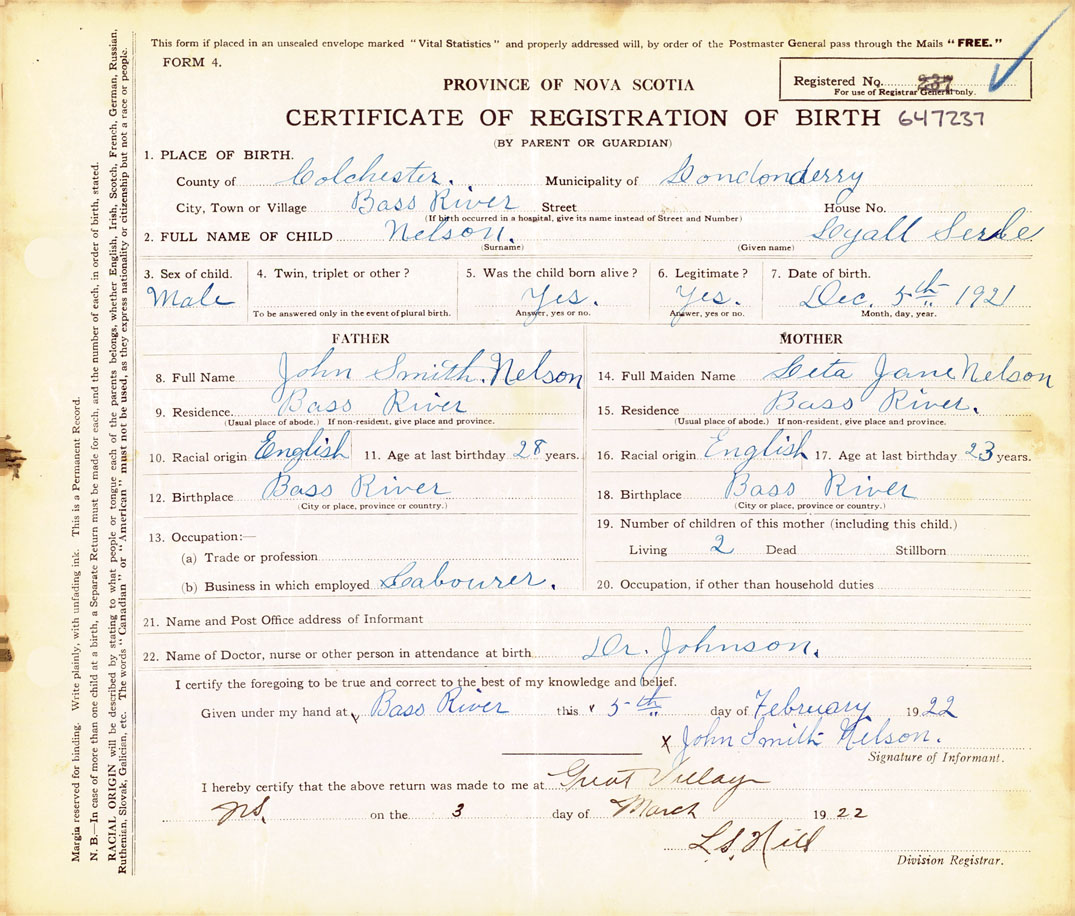 This form if placed in an unsealed envelope marked "Vital Statistics" and properly addressed will, by order of the Postmaster General pass through the Mails "FREE."
FORM 4.
Registered No. 237
For use of Registrar General only.
PROVINCE OF NOVA SCOTIA
CERTIFICATE OF REGISTRATION OF BIRTH 647237
(BY PARENT OR GUARDIAN)
1. PLACE OF BIRTH.
County of Colchester. Municipality of Londonderry
City, Town or Village Bass River Street House No.
(If birth occurred in a hospital, give its name instead of Street and Number)
2. FULL NAME OF CHILD Nelson. Lyall
(Surname) (Given name)
3. Sex of child. 4. Twin, triplet or other? 5. Was the child born alive? 6. Legitimate? 7. Date of birth.
Male Yes. Yes. Dec. 5th 1921
To be answered only in the event of plural birth. Answer, yes or no. Answer, yes or no. Month, day, year.
FATHER MOTHER
8. Full Name John Smith Nelson 14. Full Maiden Name Leta Jane Nelson
9. Residence. Bass River 15. Residence Bass River.
(Usual place of abode.) If non-resident, give place and province. (Usual place of abode.) If non-resident, give place and province.
10. Racial origin English 11. Age at last birthday 28 years. 16. Racial origin English 17. Age at last birthday 23 years.
12. Birthplace Bass River 18. Birthplace Bass River
(City or place, province or country.) (City or place, province or country.)
13. Occupation:— 19. Number of children of this mother (including this child.)
(a) Trade or profession Living 2 Dead Stillborn
(b) Business in which employed Labourer. 20. Occupation, if other than household duties
21. Name and Post Office address of Informant
22. Name of Doctor, nurse or other person in attendance at birth Dr. Johnson.
I certify the foregoing to be true and correct to the best of my knowledge and belief.
Given under my hand at Bass River this 5th day of February 1922
x John Smith Nelson.
Signature of Informant.
I hereby certify that the above return was made to me at Great Village
NS. on the 3 day of March 1922
L.S. Hill
Division Registrar.
Margin reserved for binding. Write plainly, with unfading ink. This is a Permanent Record.
N. B.—In case of more than one child at a birth, a Separate Return must be made for each, and the number of each, in order of birth, stated.
RACIAL ORIGIN will be described by stating to what people or tongue each of the parents belongs, whether English, Irish, Scotch, French, German, Russian,
Ruthenian, Slovak, Galician, etc. The words "Canadian" or "American" must not be used, as they express nationality or citizenship but not a race or people.